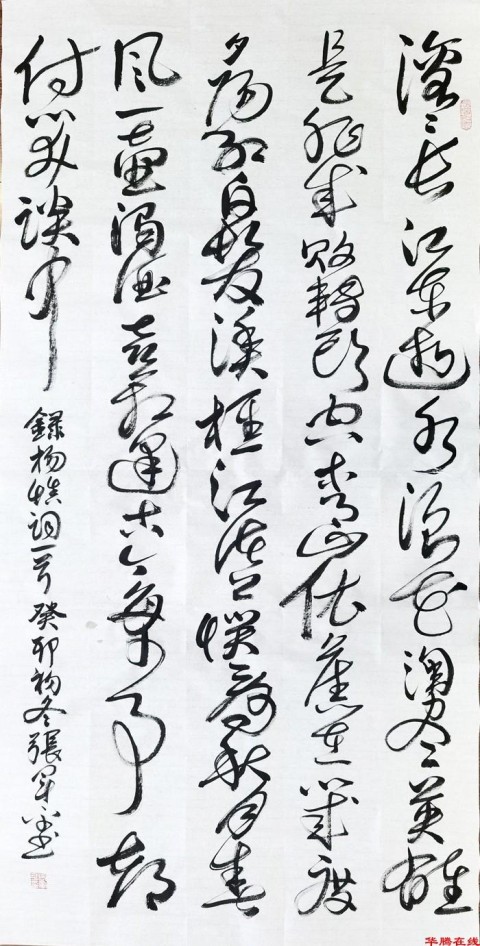 滚滚长江东逝水浪花淘尽英雄
是非成败转头空青山依旧在几度
夕阳红白发渔樵江渚上惯看秋月春
风一壶浊酒喜相逢古今多少事都
付笑谈中
录杨慎词一首 癸卯初冬张军书
华腾在线